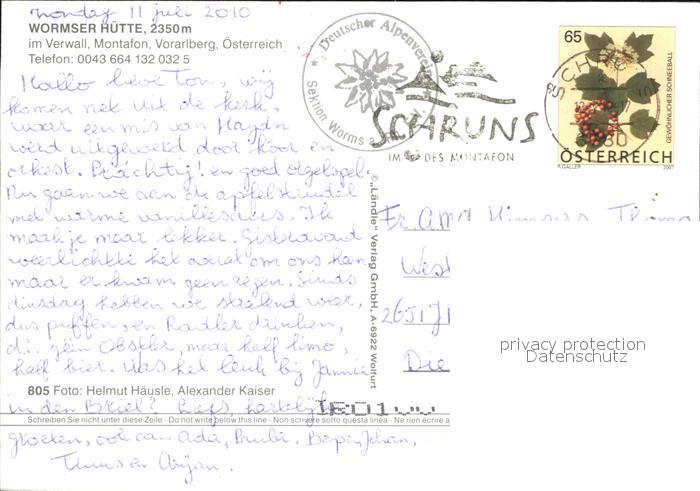 zondag 11 juli 2010
WORMSER HÜTTE, 2350 m
im Verwall, Montafon, Vorarlberg, Österreich
Telefon: 0043 664 132 032 5
Hallo lieve Ton, wij
komen net uit de kerk,
waar een mis van Haydn
werd uitgevoerd door koor en
orkest. Práchtig! en goed orgelspel.
Nu gaan we aan de apfelstrudel
met warme vanillesaus. Ik
maak je maar lekker. Gisteravond
weerlichtte het overal om ons heen
maar er kwam geen regen. Sinds
dinsdag hebben we stralend weer,
dus puffen, en Radler drinken,
d.i. géin Obstler, maar half limo,
half bier. Was het leuk bij Jannie
in den Briel? Liefs, hartelijke
groeten, ook van Ada, Paula, Bep en Johan,
Teuns en Arjan.
805 Foto: Helmut Häusle, Alexander Kaiser
Schreiben Sie nicht unter diese Zeile - Do not write below this line - Non scrivere sotto questa linea - Ne rien ecrire a
© „Ländle“ Verlag GmbH, A-6922 Wolfurt
Deutscher Alpenverein
Sektion Worms
SCHRUNS
IM DES MONTAFON
65
GEWÖHNLICHER SCHNEEBALL
ÖSTERREICH
R.GALLER 2007
SCHRUNS
Fr.
West
2651 J
Die
privacy protection
Datenschutz